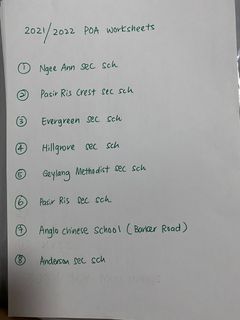 2021/2022 POA Worksheets
① Ngee Ann sec sch
② Pasir Ris Crest sec sch
③ Evergreen sec sch
④ Hillgrove sec sch
⑤ Geylang Methodist sec sch
⑥ Pasir Ris sec sch
⑦ Anglo chinese school (Barker Road)
⑧ Anderson sec sch